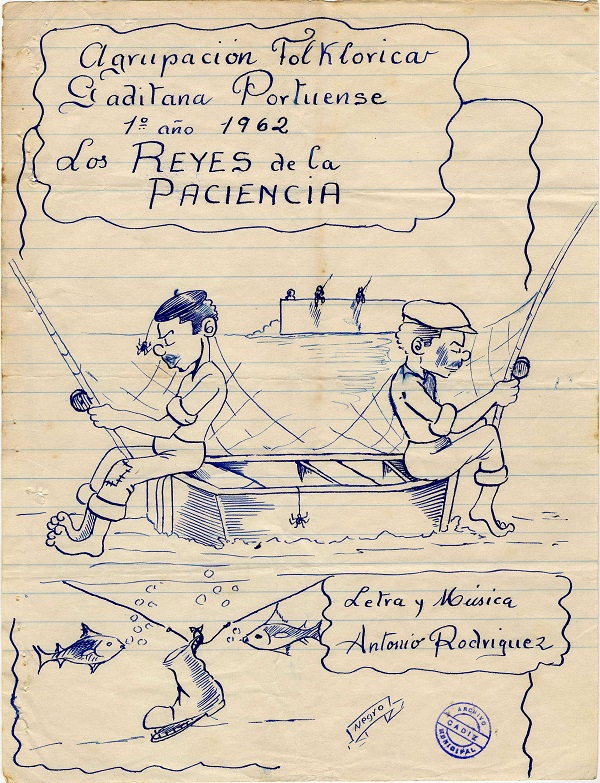 Agrupación Folklorica
Gaditana Portuense
1º año 1962
Los REYES de la
PACIENCIA
Letra y Música
Antonio Rodriguez
Negro
ARCHIVO
CADIZ
MUNICIPAL